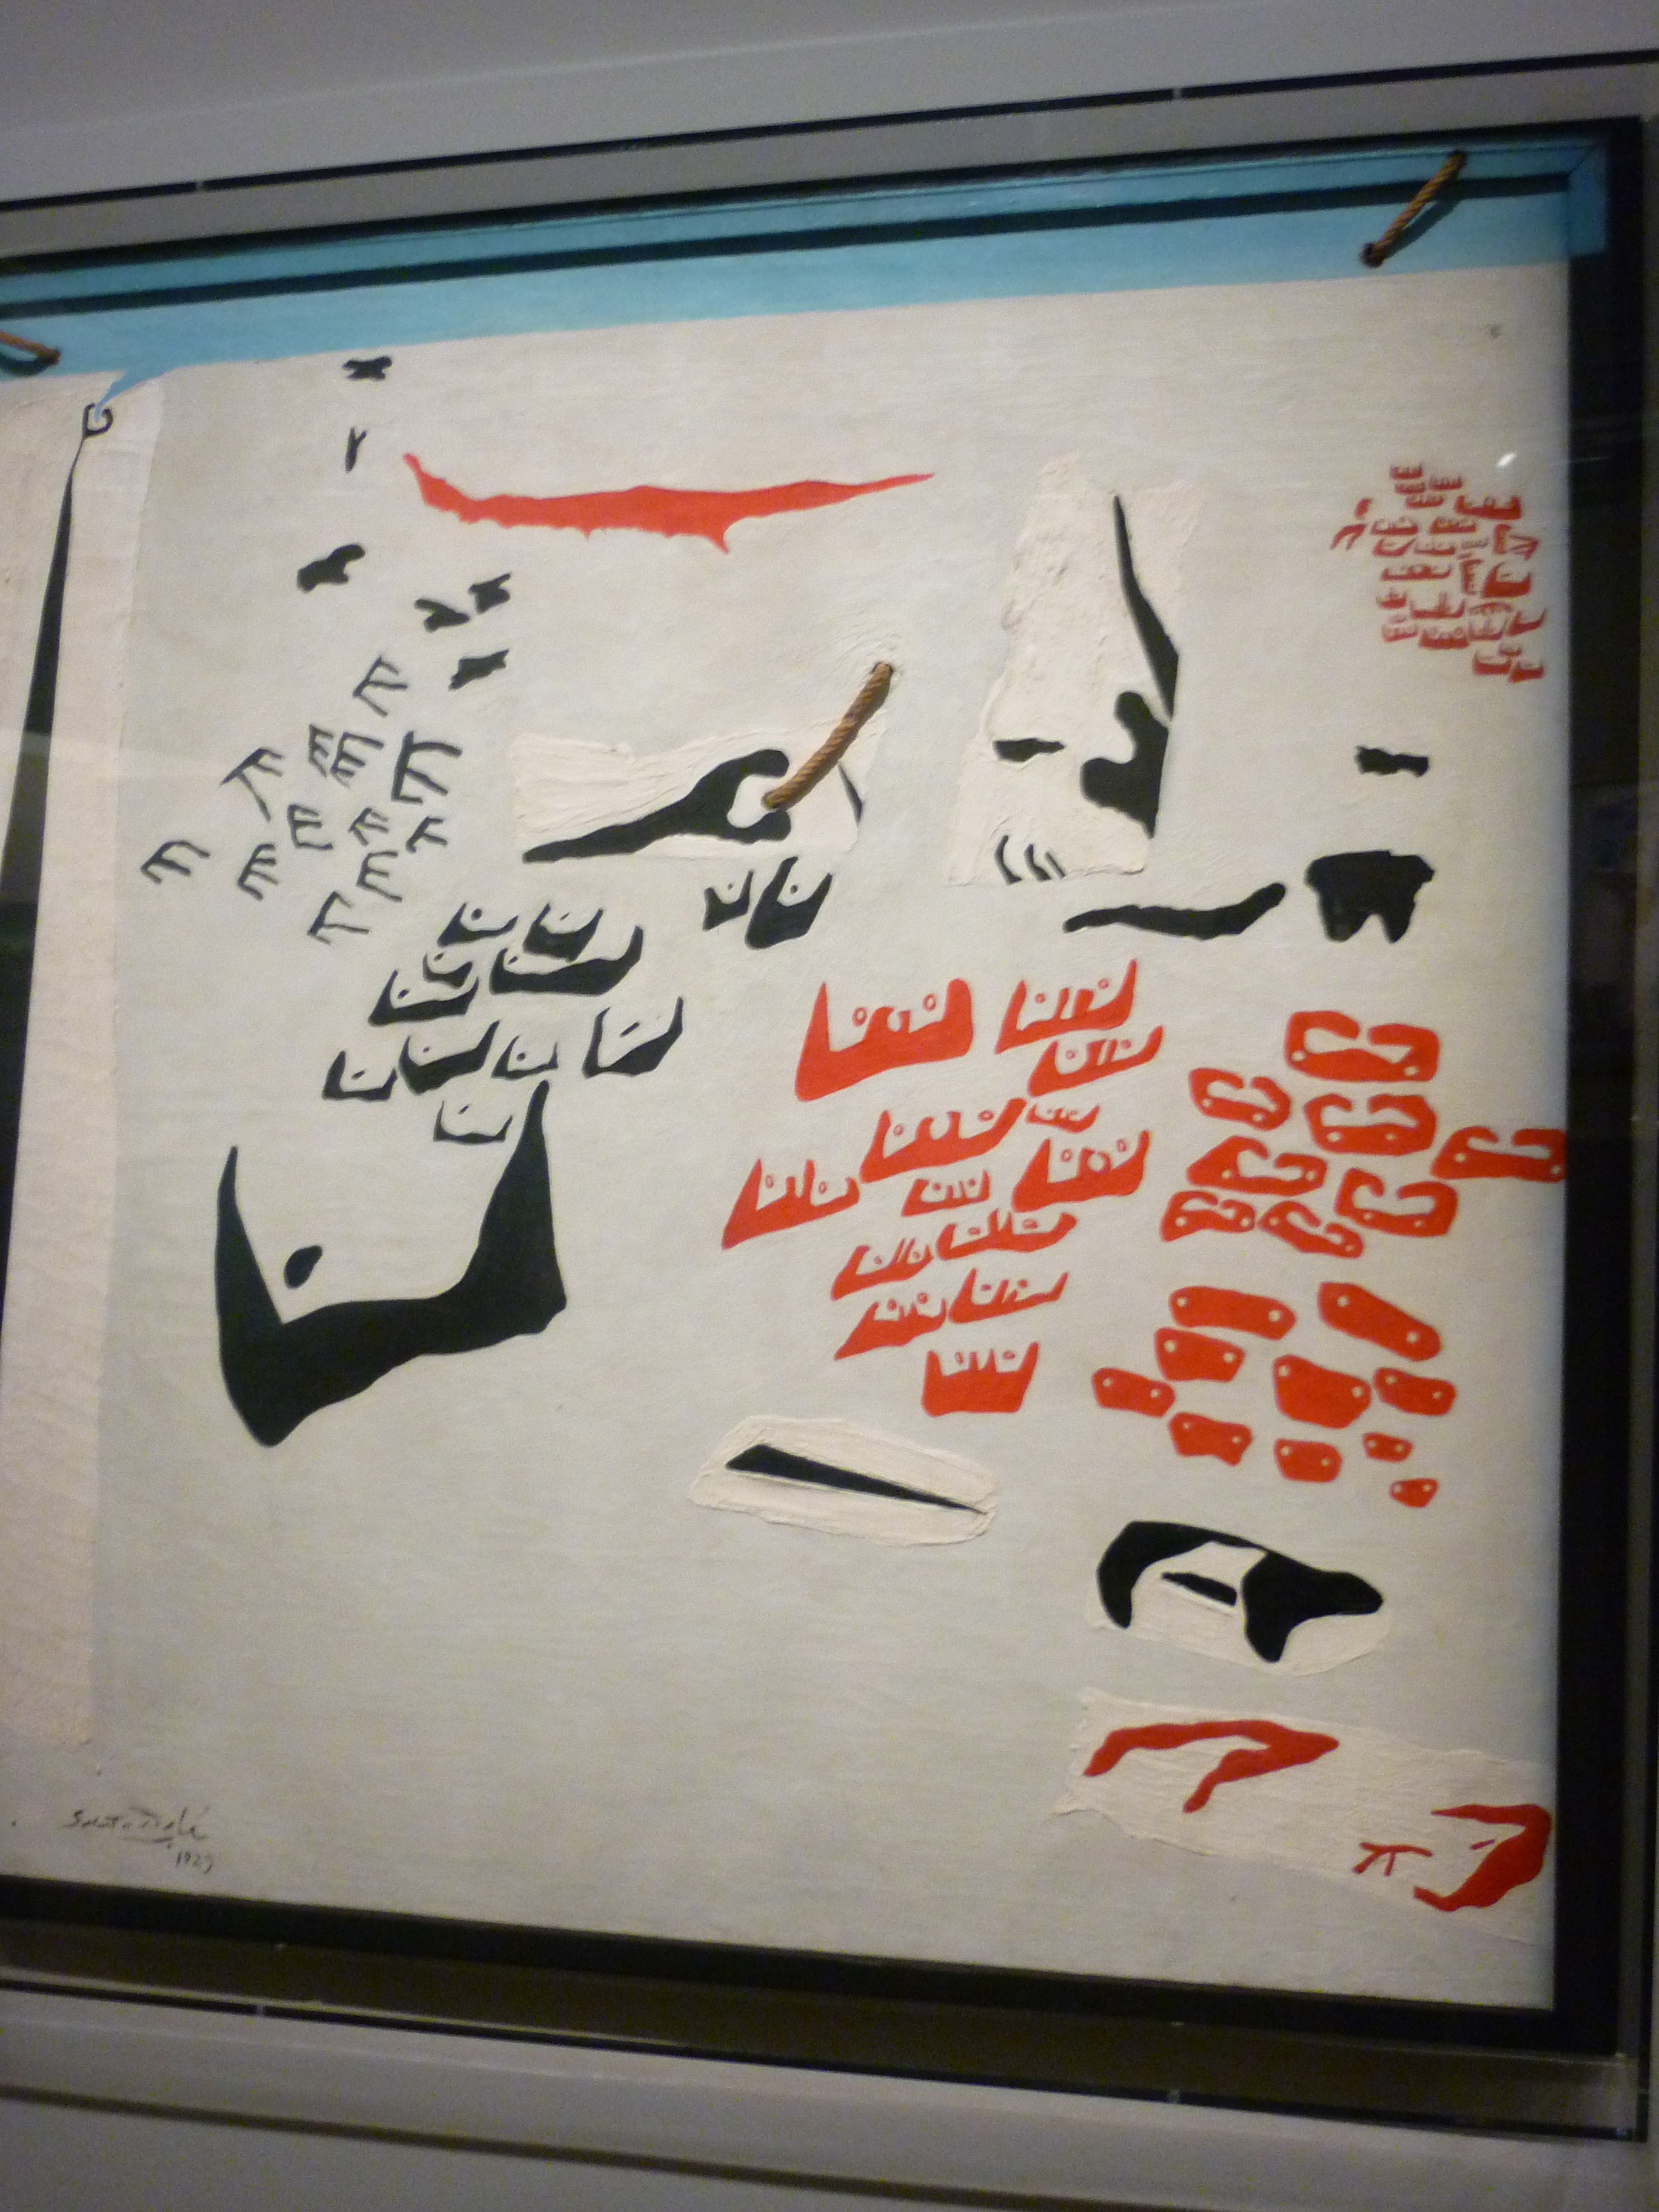 Salvador Dalí
1929